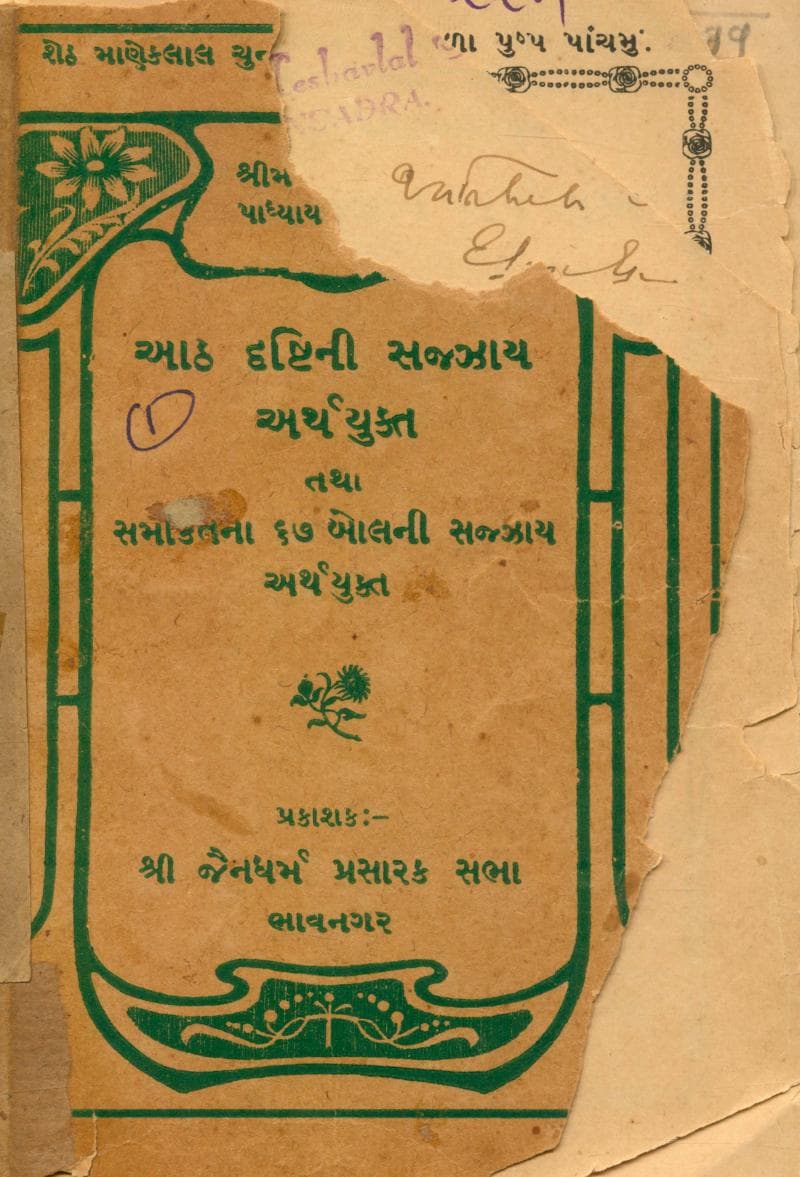 શેઠ માણેકલાલ ચુન
ળા પુષ્પ પાંચમુ.
Kesharlal
શ્રીમ
પાધ્યાય
આઠ દૃષ્ટિની સજઝાય
અર્થયુક્ત
તથા
સમકિતના ૬૭ બોલની સજ્ઝાય
અર્થયુક્ત
પ્રકાશક:–
શ્રી જૈનધર્મ પ્રસારક સભા
ભાવનગર